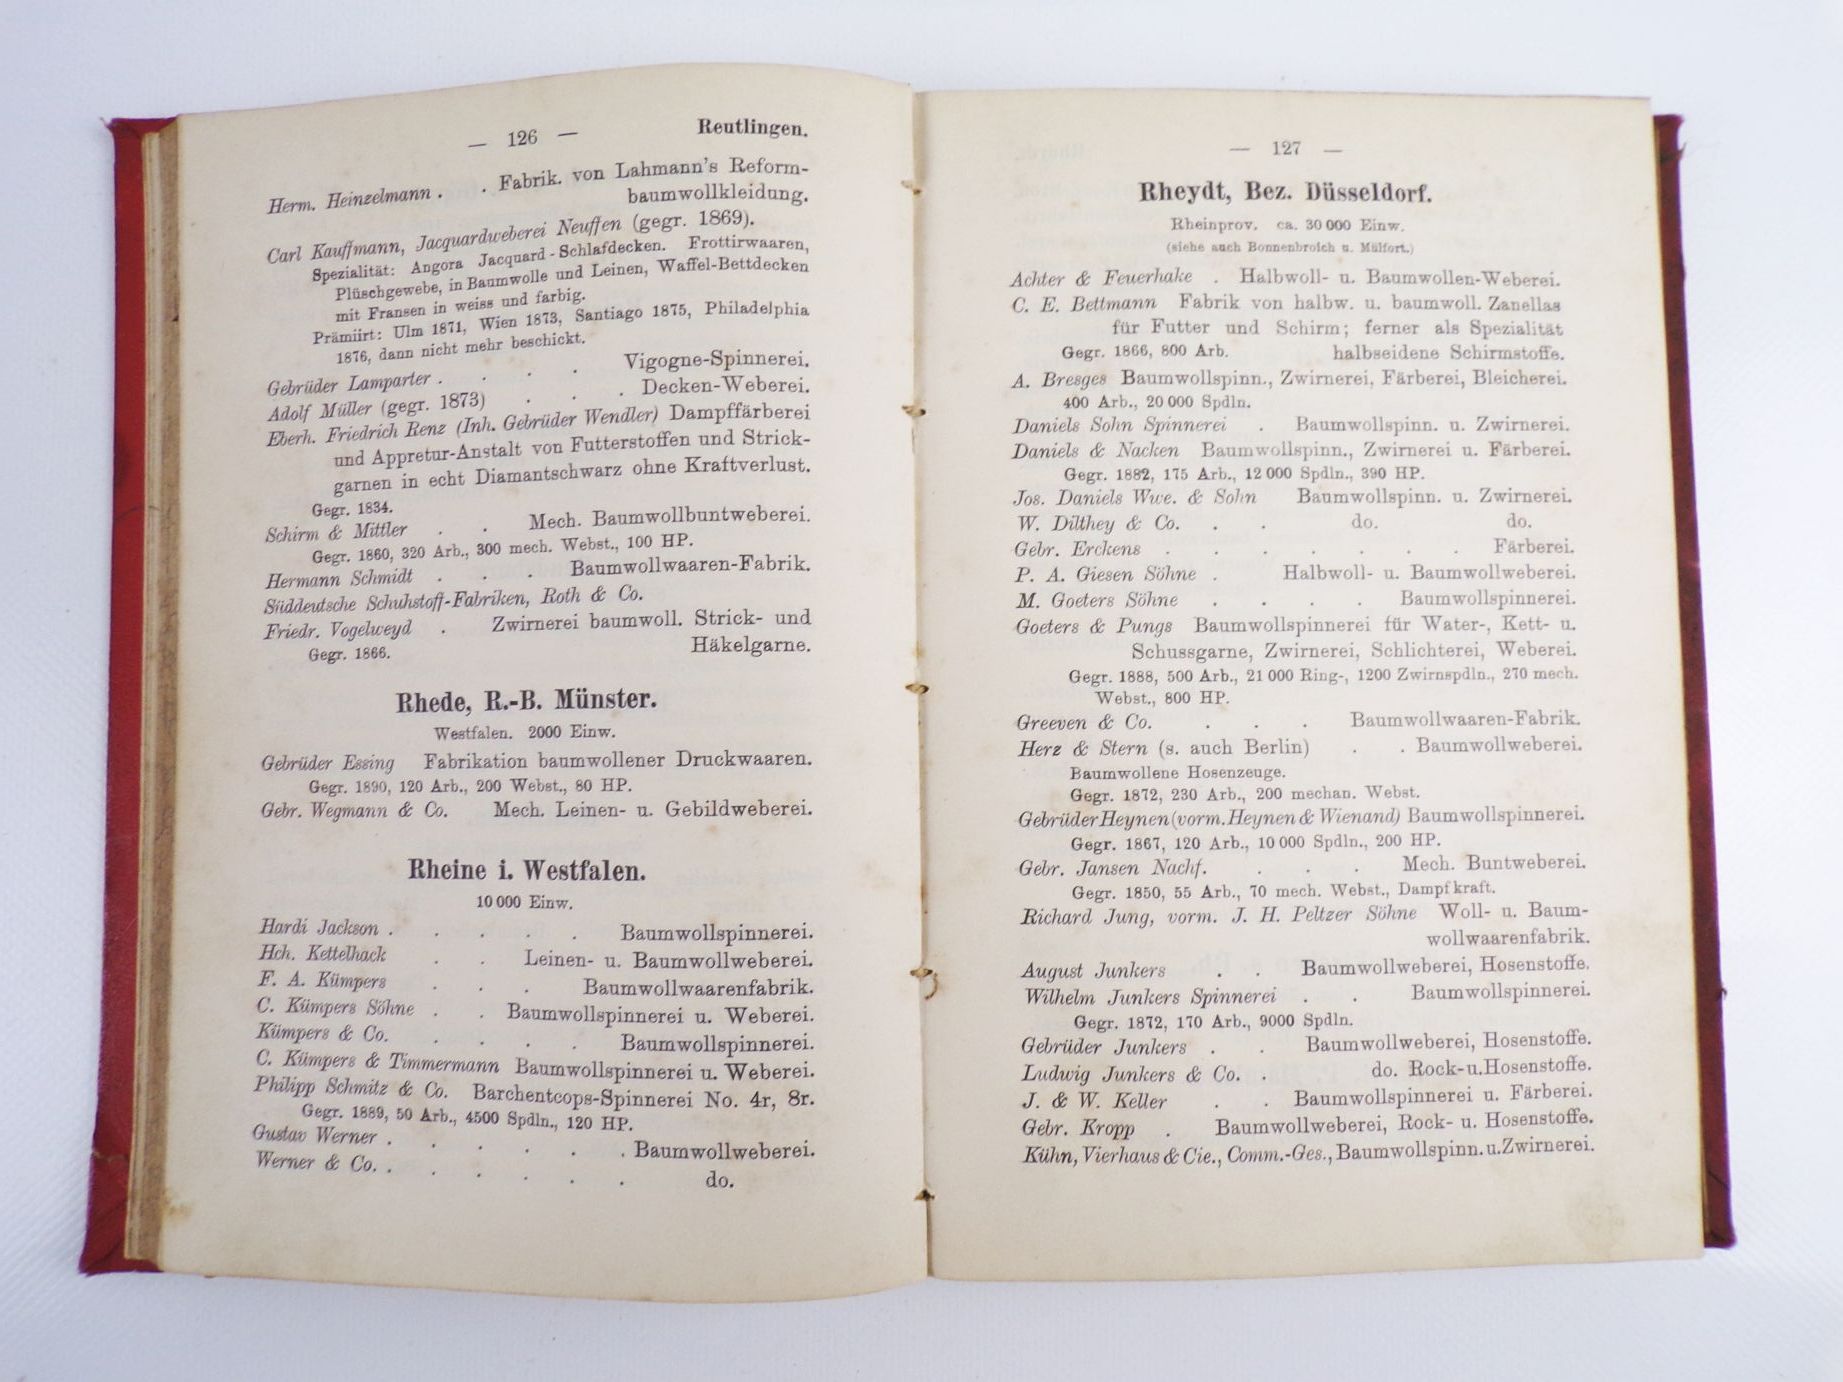 — 126 — Reutlingen.
Herm. Heinzelmann . . Fabrik. von Lahmann's Reform-
baumwollkleidung.
Carl Kauffmann, Jacquardweberei Neuffen (gegr. 1869).
Spezialität: Angora Jacquard-Schlafdecken. Frottirwaaren,
Plüschgewebe, in Baumwolle und Leinen, Waffel-Bettdecken
mit Fransen in weiss und farbig.
Prämiirt: Ulm 1871, Wien 1873, Santiago 1875, Philadelphia
1876, dann nicht mehr beschickt.
Gebrüder Lamparter . . . . Vigogne-Spinnerei.
Adolf Müller (gegr. 1873) . . . Decken-Weberei.
Eberh. Friedrich Renz (Inh. Gebrüder Wendler) Dampffärberei
und Appretur-Anstalt von Futterstoffen und Strick-
garnen in echt Diamantschwarz ohne Kraftverlust.
Gegr. 1834.
Schirm & Mittler . . Mech. Baumwollbuntweberei.
Gegr. 1860, 320 Arb., 300 mech. Webst., 100 HP.
Hermann Schmidt . . . Baumwollwaaren-Fabrik.
Süddeutsche Schuhstoff-Fabriken, Roth & Co.
Friedr. Vogelweyd . Zwirnerei baumwoll. Strick- und
Gegr. 1866. Häkelgarne.
Rhede, R.-B. Münster.
Westfalen. 2000 Einw.
Gebrüder Essing Fabrikation baumwollener Druckwaaren.
Gegr. 1890, 120 Arb., 200 Webst., 80 HP.
Gebr. Wegmann & Co. Mech. Leinen- u. Gebildweberei.
Rheine i. Westfalen.
10 000 Einw.
Hardi Jackson . . . . . Baumwollspinnerei.
Hch. Kettelhack . . Leinen- u. Baumwollweberei.
F. A. Kümpers . . . Baumwollwaarenfabrik.
C. Kümpers Söhne . . Baumwollspinnerei u. Weberei.
Kümpers & Co. . . . . Baumwollspinnerei.
C. Kümpers & Timmermann Baumwollspinnerei u. Weberei.
Philipp Schmitz & Co. Barchentcops-Spinnerei No. 4r, 8r.
Gegr. 1889, 50 Arb., 4500 Spdln., 120 HP.
Gustav Werner . . . . . . Baumwollweberei.
Werner & Co. . . . . . . do.
— 127 —
Rheydt, Bez. Düsseldorf.
Rheinprov. ca. 30 000 Einw.
(siehe auch Bonnenbroich u. Mülfort.)
Achter & Feuerhake . Halbwoll- u. Baumwollen-Weberei.
C. E. Bettmann Fabrik von halbw. u. baumwoll. Zanellas
für Futter und Schirm; ferner als Spezialität
Gegr. 1866, 800 Arb. halbseidene Schirmstoffe.
A. Bresges Baumwollspinn., Zwirnerei, Färberei, Bleicherei.
400 Arb., 20 000 Spdln.
Daniels Sohn Spinnerei . Baumwollspinn. u. Zwirnerei.
Daniels & Nacken Baumwollspinn., Zwirnerei u. Färberei.
Gegr. 1882, 175 Arb., 12 000 Spdln., 390 HP.
Jos. Daniels Wwe. & Sohn Baumwollspinn. u. Zwirnerei.
W. Dilthey & Co. . . do. do.
Gebr. Erckens . . . . . . . Färberei.
P. A. Giesen Söhne . Halbwoll- u. Baumwollweberei.
M. Goeters Söhne . . . . Baumwollspinnerei.
Goeters & Pungs Baumwollspinnerei für Water-, Kett- u.
Schussgarne, Zwirnerei, Schlichterei, Weberei.
Gegr. 1888, 500 Arb., 21 000 Ring-, 1200 Zwirnspdln., 270 mech.
Webst., 800 HP.
Greeven & Co. . . . Baumwollwaaren-Fabrik.
Herz & Stern (s. auch Berlin) . . Baumwollweberei.
Baumwollene Hosenzeuge.
Gegr. 1872, 230 Arb., 200 mechan. Webst.
Gebrüder Heynen (vorm. Heynen & Wienand) Baumwollspinnerei.
Gegr. 1867, 120 Arb., 10 000 Spdln., 200 HP.
Gebr. Jansen Nachf. . . . Mech. Buntweberei.
Gegr. 1850, 55 Arb., 70 mech. Webst., Dampfkraft.
Richard Jung, vorm. J. H. Peltzer Söhne Woll- u. Baum-
wollwaarenfabrik.
August Junkers . . Baumwollweberei, Hosenstoffe.
Wilhelm Junkers Spinnerei . . Baumwollspinnerei.
Gegr. 1872, 170 Arb., 9000 Spdln.
Gebrüder Junkers . . Baumwollweberei, Hosenstoffe.
Ludwig Junkers & Co. . do. Rock- u. Hosenstoffe.
J. & W. Keller . . Baumwollspinnerei u. Färberei.
Gebr. Kropp . Baumwollweberei, Rock- u. Hosenstoffe.
Kühn, Vierhaus & Cie., Comm.-Ges., Baumwollspinn. u. Zwirnerei.